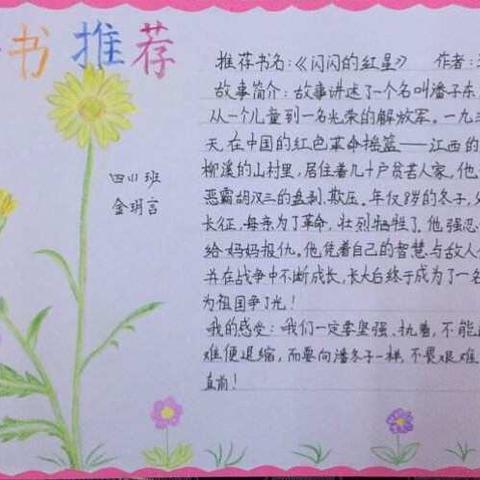 书推荐
四(1)班
金玥言
推荐书名:《闪闪的红星》 作者:
故事简介:故事讲述了一个名叫潘子东
从一个儿童到一名光荣的解放军。一九三
天,在中国的红色革命摇篮——江西的
柳溪的山村里,居住着几十户贫苦人家。他
恶霸胡汉三的盘剥、欺压。年仅8岁的冬子,
长征,母亲为了革命,壮烈牺牲了。他强忍
给妈妈报仇。他凭着自己的智慧与敌人
并在战争中不断成长,长大后终于成为了一名
为祖国争了光!
我的感受:我们一定要坚强、执着,不能
难便退缩,而要向潘冬子一样,不畏艰难
直前!